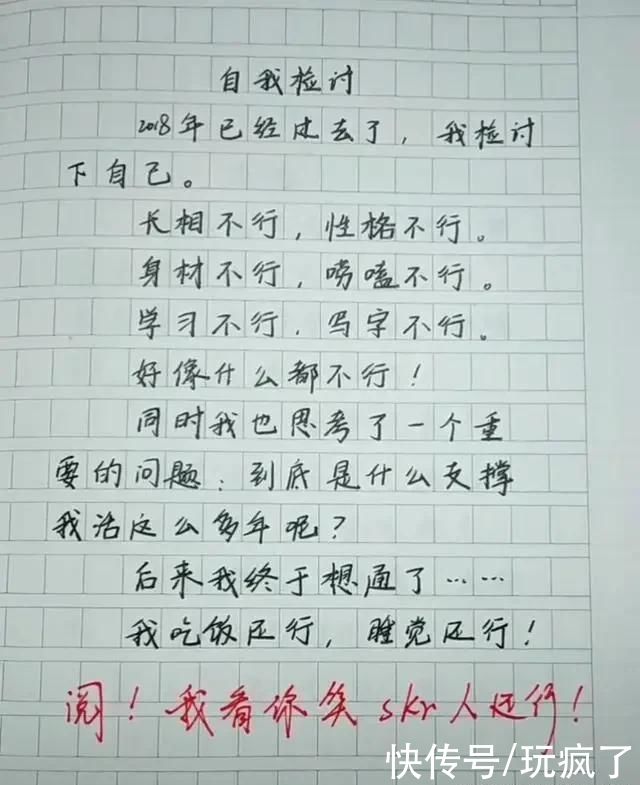 自我检讨
2018年已经过去了,我检讨
下自己。
长相不行,性格不行。
身材不行,唠嗑不行。
学习不行,写字不行。
好像什么都不行!
同时我也思考了一个重
要的问题:到底是什么支撑
我活这么多年呢?
后来我终于想通了……
我吃饭还行,睡觉还行!
阅!我看你笑skr人还行!
快传号/玩疯了